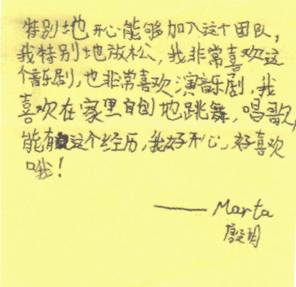 特别地开心能够加入这个团队，
我特别地放松，我非常喜欢这
个音乐剧，也非常喜欢演音乐剧，我
喜欢在家里自地跳舞，唱歌，
能有这个经历，我好开心，好喜欢
哦！
—— Marta